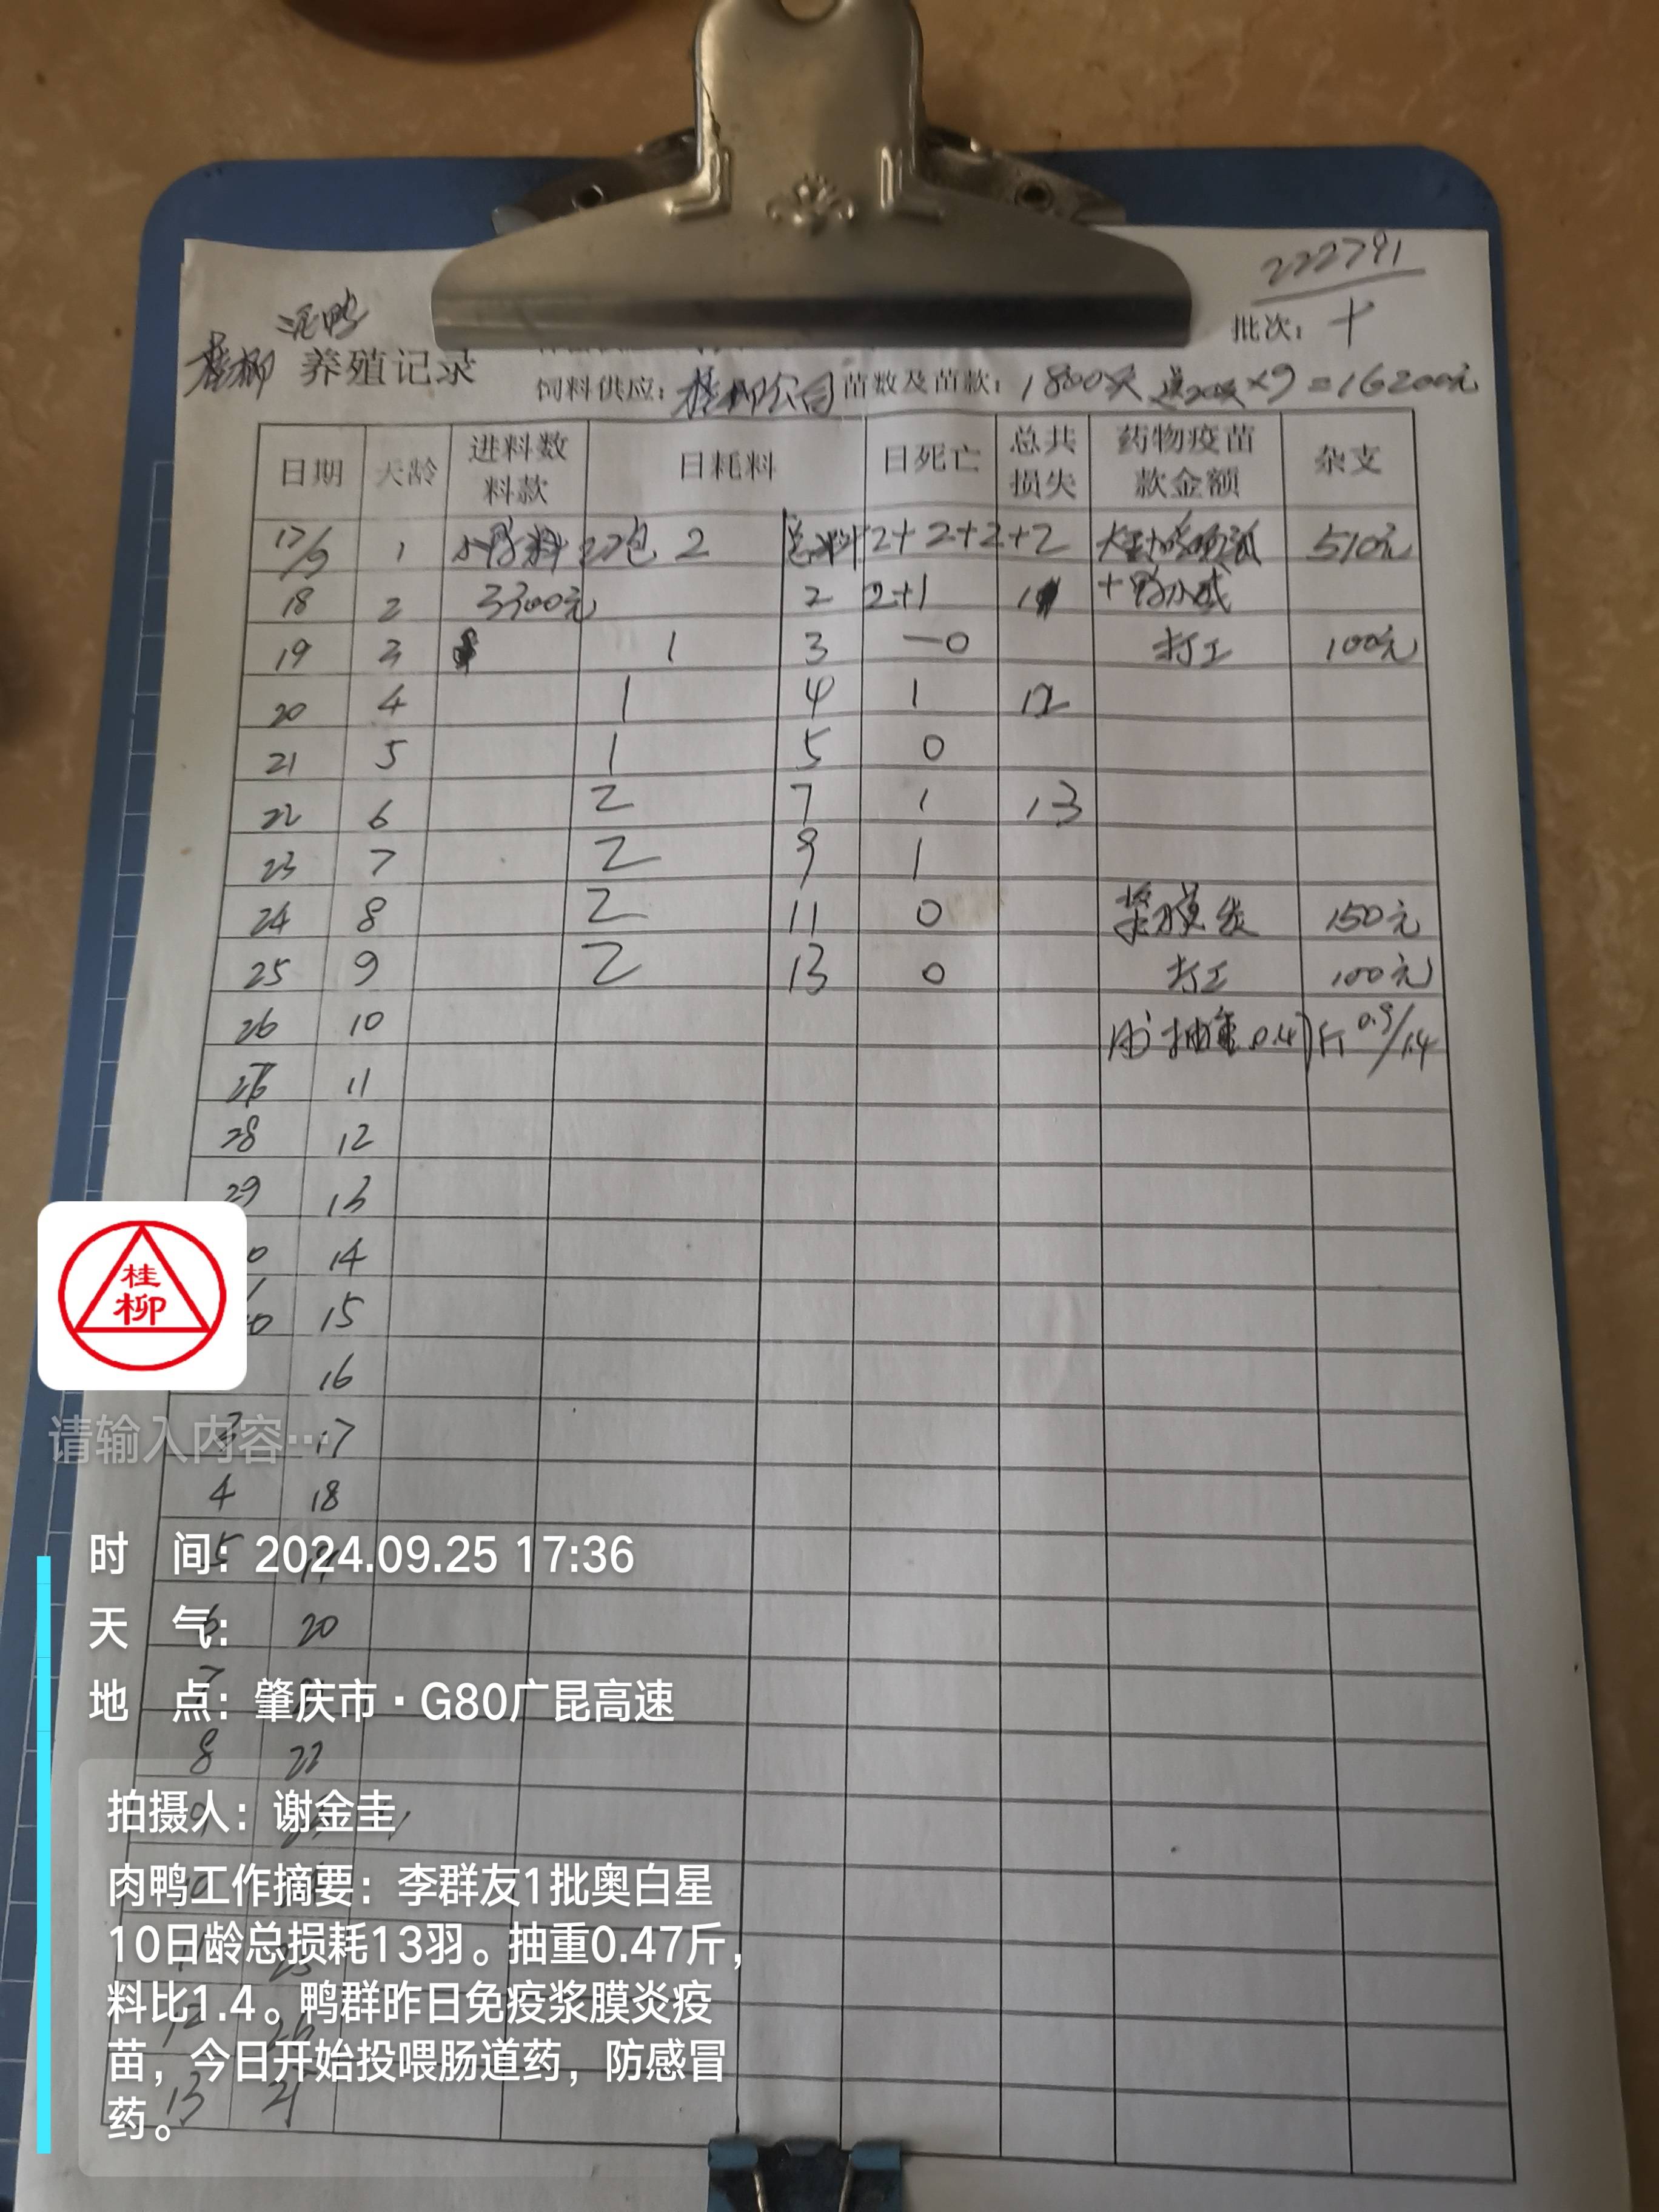 222791
批次： 十
泥鸭
桂柳 养殖记录
饲料供应：桂柳公司 苗数及苗款：1800只 送20只 ×9=16200元
日期 天龄 进料数料款 日耗料 日死亡 总共损失 药物疫苗款金额 杂支
17/9 1 小鸭料 27包 2 总料 2+2+2+2 510元
18 2 3300元 2 2+1 11
19 3 1 3 —0 打工 100元
20 4 1 4 1 12
21 5 1 5 0
22 6 2 7 1 13
23 7 2 9 1
24 8 2 11 0 浆膜炎 150元
25 9 2 13 0 打工 100元
26 10 抽重0.47斤 0.9/1.4
11
28 12
29 13
14
15
16
3 17
4 18
5 19
6 20
7 21
8 22
9
10
25
12 26
13
桂柳
请输入内容…
时 间：2024.09.25 17:36
天 气：
地 点：肇庆市·G80广昆高速
拍摄人：谢金圭
肉鸭工作摘要：李群友1批奥白星
10日龄总损耗13羽。抽重0.47斤，
料比1.4。鸭群昨日免疫浆膜炎疫
苗，今日开始投喂肠道药，防感冒
药。